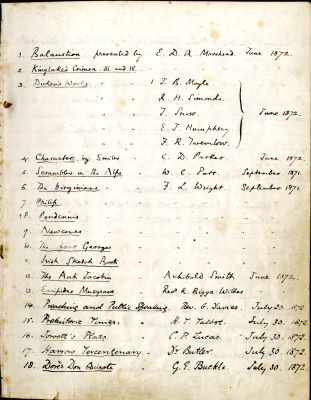 1. Balaustion presented by E. D. A. Morshead. June 1872.
2. Kinglake's Crimea. III. and IV. " "
3. Dickens's Works " 1 J. B. Moyle
R. H. Simonds.
J. Snow. June 1872.
E. J. Humphery.
F. R. Twemlow.
4. Character, by Smiles. C. D. Parker. June 1872.
5. Scrambles in the Alps W. C. Parr. September 1871.
6. The Virginians. F. L. Wright. September 1871.
7. Philip " " "
8. Pendennis " " "
9. Newcomes " " "
10. The Four Georges " " "
11. Irish Sketch Book " " "
12. The Anti Jacobin Archibald Smith June 1872.
13. Euripides Revd. R. Bigge-Wither
14. Preaching and Public Speaking. Rev. G. Davies. July 23. 1872
15. Prehistoric Times. " H. T. Talbot. July 30. 1872
16. Jowett's Plato. " C. P. Lucas. July 30. 1872.
17. Harrow Tercentenary. " Dr Butler. July 30. 1872.
18. Doré's Don Quixote " G. E. Buckle July 30. 1872.